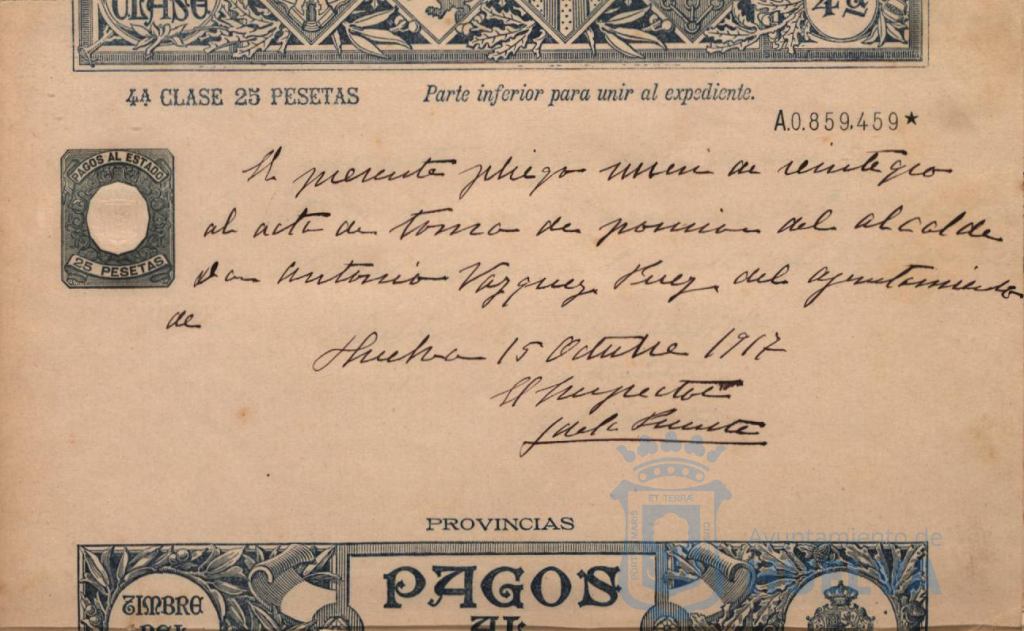 CLASE 4ª
4A CLASE 25 PESETAS Parte inferior para unir al expediente.
A.0.859.459★
PAGOS AL ESTADO
25 PESETAS
El presente pliego sirve de reintegro
al acta de toma de posesion del alcalde
Don Antonio Vazquez Perez del ayuntamiento
de
Huelva 15 Octubre 1917
El Inspector
J de la Puente
PROVINCIAS
TIMBRE
DEL
PAGOS
AL
PORTUS MARIS ET TERRÆ CUSTODIA
Ayuntamiento de
HUELVA